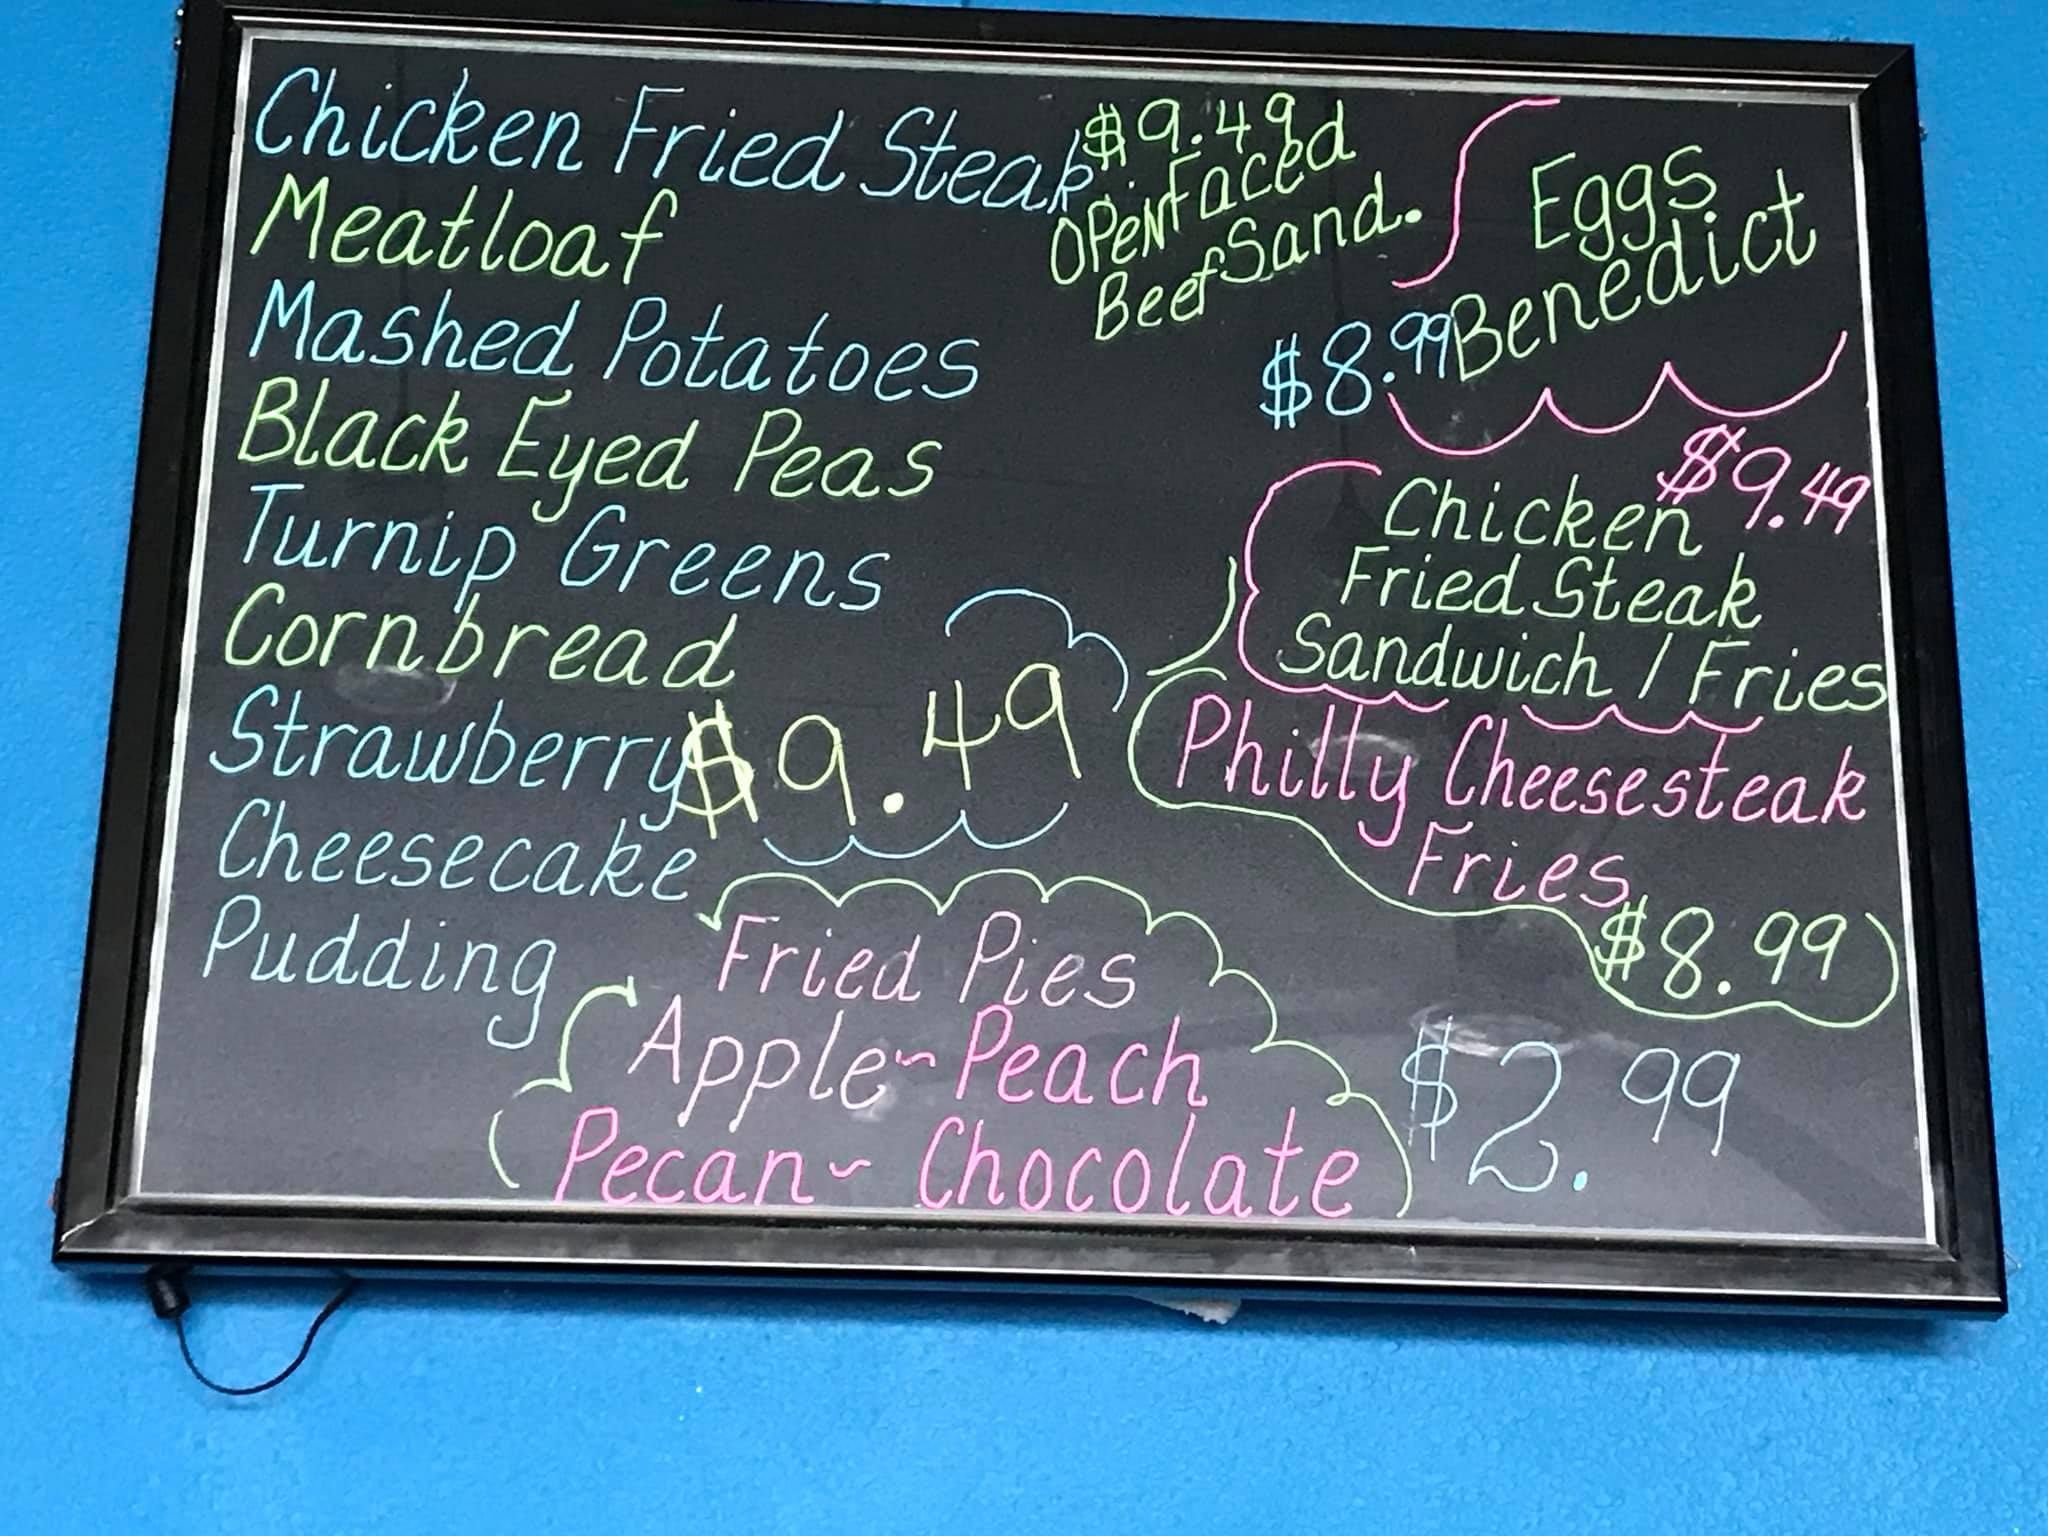 Chicken Fried Steak
Meatloaf
Mashed Potatoes
Black Eyed Peas
Turnip Greens
Cornbread
Strawberry
Cheesecake
Pudding
$9.49
$9.49
OPeN Faced
Beef Sand.
Eggs
Benedict
$8.99
$9.49
Chicken
Fried Steak
Sandwich / Fries
Philly Cheesesteak
Fries
$8.99
Fried Pies
Apple~Peach
Pecan~Chocolate
$2.99